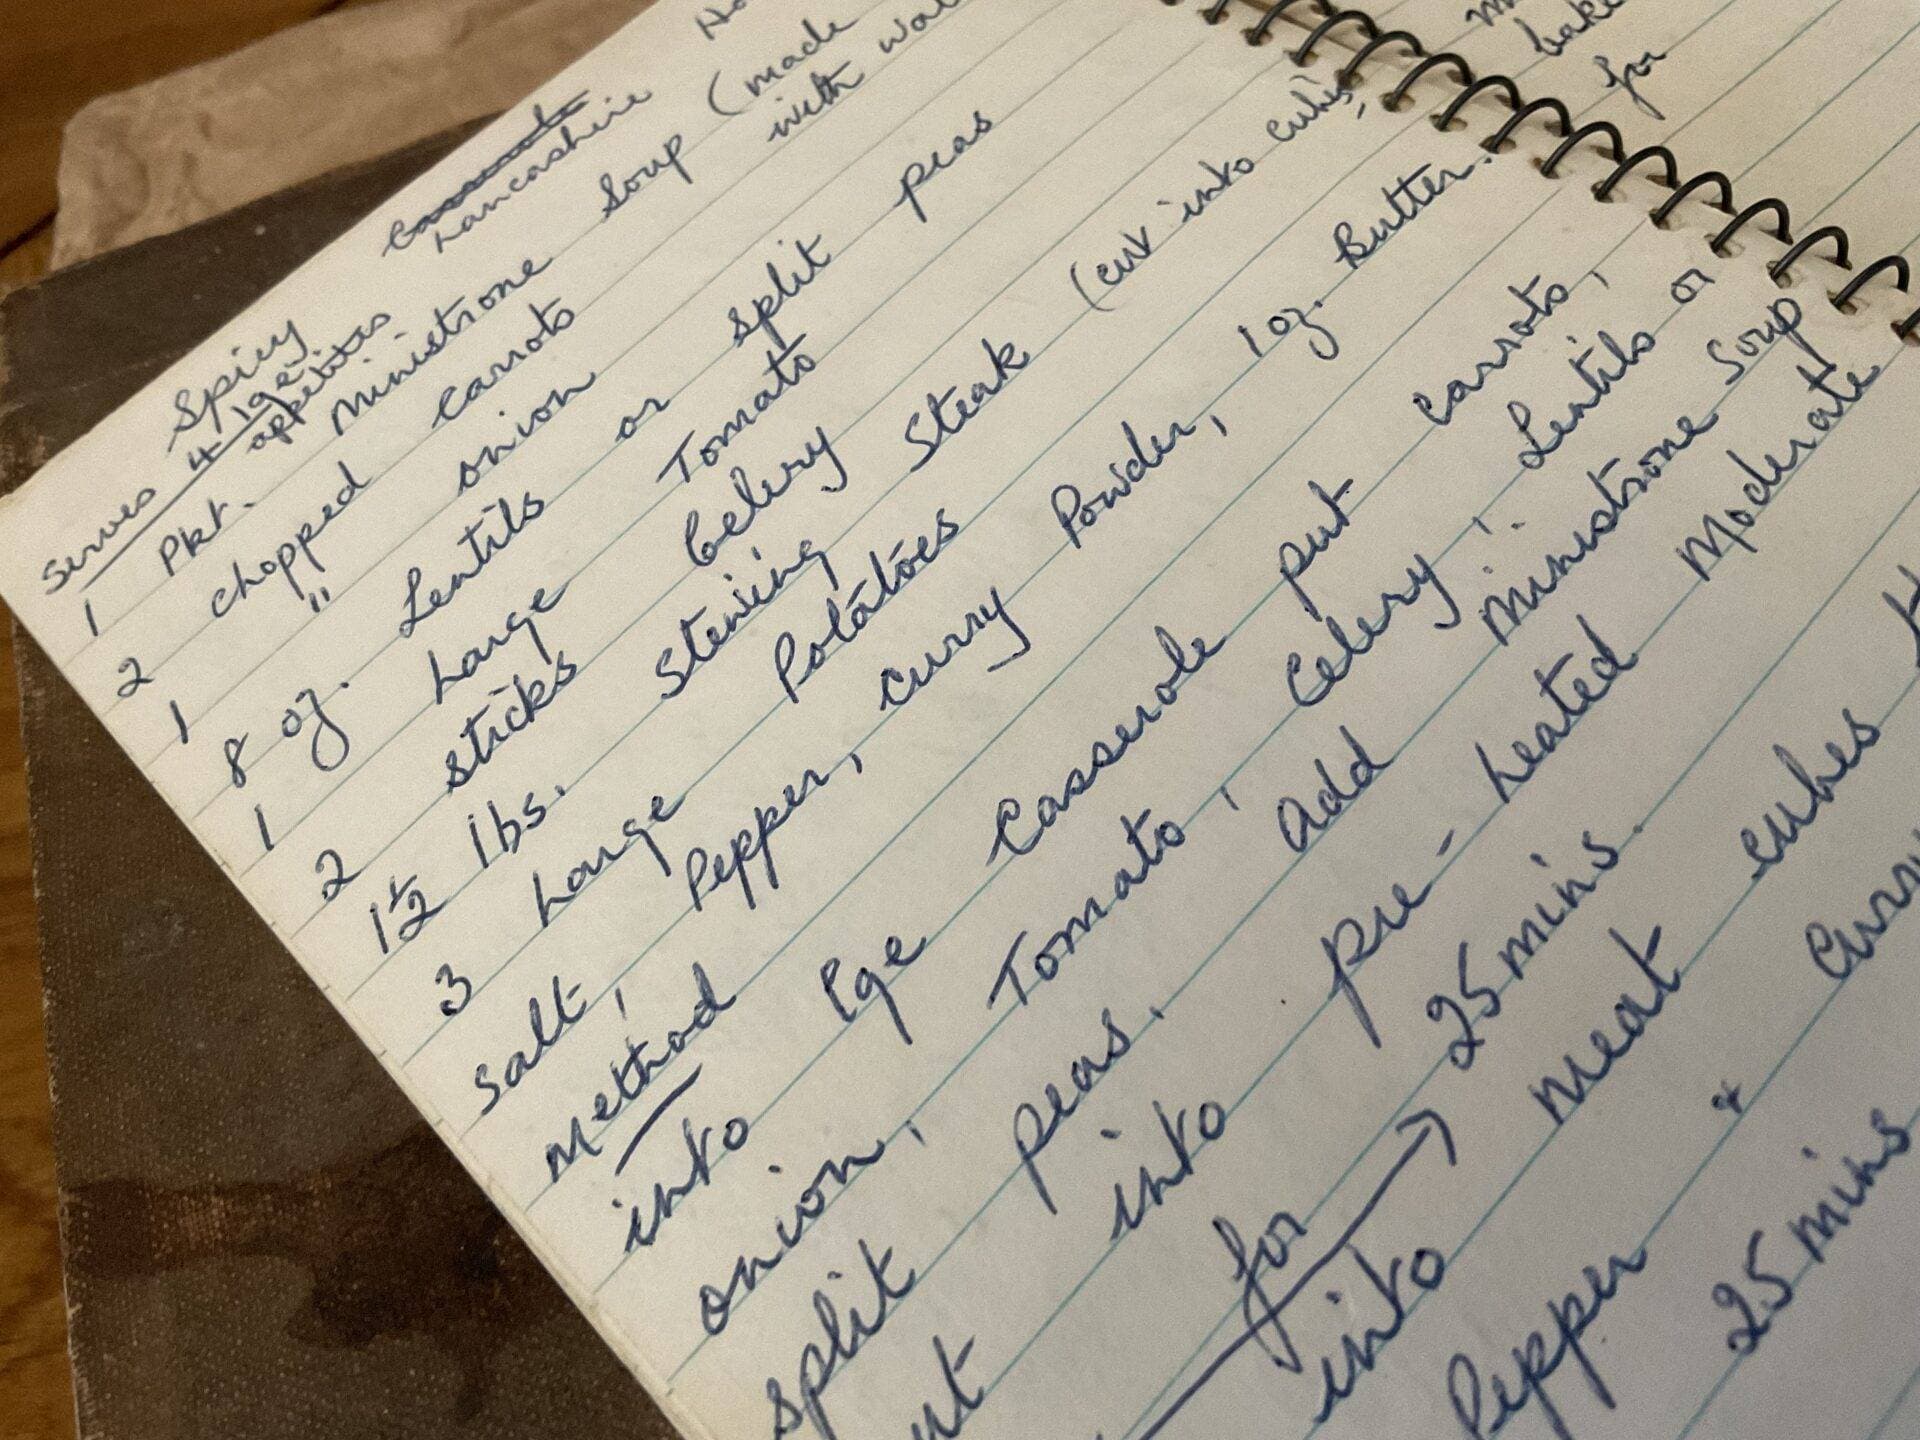 Spicy Lancashire
Serves 4 lge appetites
1 Pkt. Ministrone Soup (made with
2 chopped carrots
1 " onion
8 oz. Lentils or split peas
1 Large Tomato
2 sticks Celery
1½ lbs. Stewing Steak (cut into cubes,
3 Large Potatoes
Salt, Pepper, Curry Powder, 1 oz. Butter.
Method
into lge Casserole put carrots,
onion, Tomato, Celery, Lentils or
split peas. add Minestrone Soup
into pre-heated Moderate
for 25 mins.
into meat cubes
Pepper &
25 mins
bake
for